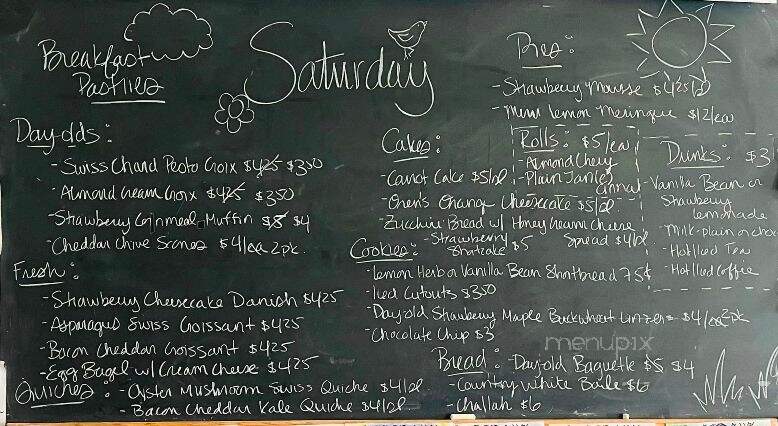 Breakfast
Pastries
Saturday
Day-olds:
- Swiss Chard Pesto Croix $4.25 $3.50
- Almond Cream Croix $4.25 $3.50
- Strawberry Cornmeal Muffin $5 $4
- Cheddar Chive Scones $4/ea 2pk.
Fresh:
- Strawberry Cheesecake Danish $4.25
- Asparagus Swiss Croissant $4.25
- Bacon Cheddar Croissant $4.25
- Egg Bagel w/ Cream Cheese $4.25
Quiches:
- Oyster Mushroom Swiss Quiche $4/sl
- Bacon Cheddar Kale Quiche $4/sl
Pies:
- Strawberry Mousse $4.25/sl
- Mini Lemon Meringue $12/ea
Cakes:
- Carrot Cake $5/sl
- Oren's Orange Cheesecake $5/sl
- Zucchini Bread w/ Honey Cream Cheese
Spread $4/sl
- Strawberry
Shortcake $5
Rolls: $5/ea
- Almond Cherry
- Plain Jane
Drinks: $3
- Vanilla Bean or
Strawberry
lemonade
- Milk-plain or choc
- Hot/Iced Tea
- Hot/Iced Coffee
Cookies:
- Lemon Herb or Vanilla Bean Shortbread 75¢
- Iced Cutouts $3.50
- Day old Strawberry Maple Buckwheat Linzers $4/ea 2pk
- Chocolate Chip $3
Bread:
- Day old Baguette $5 $4
- Country White Boule $6
- Challah $6
menupix